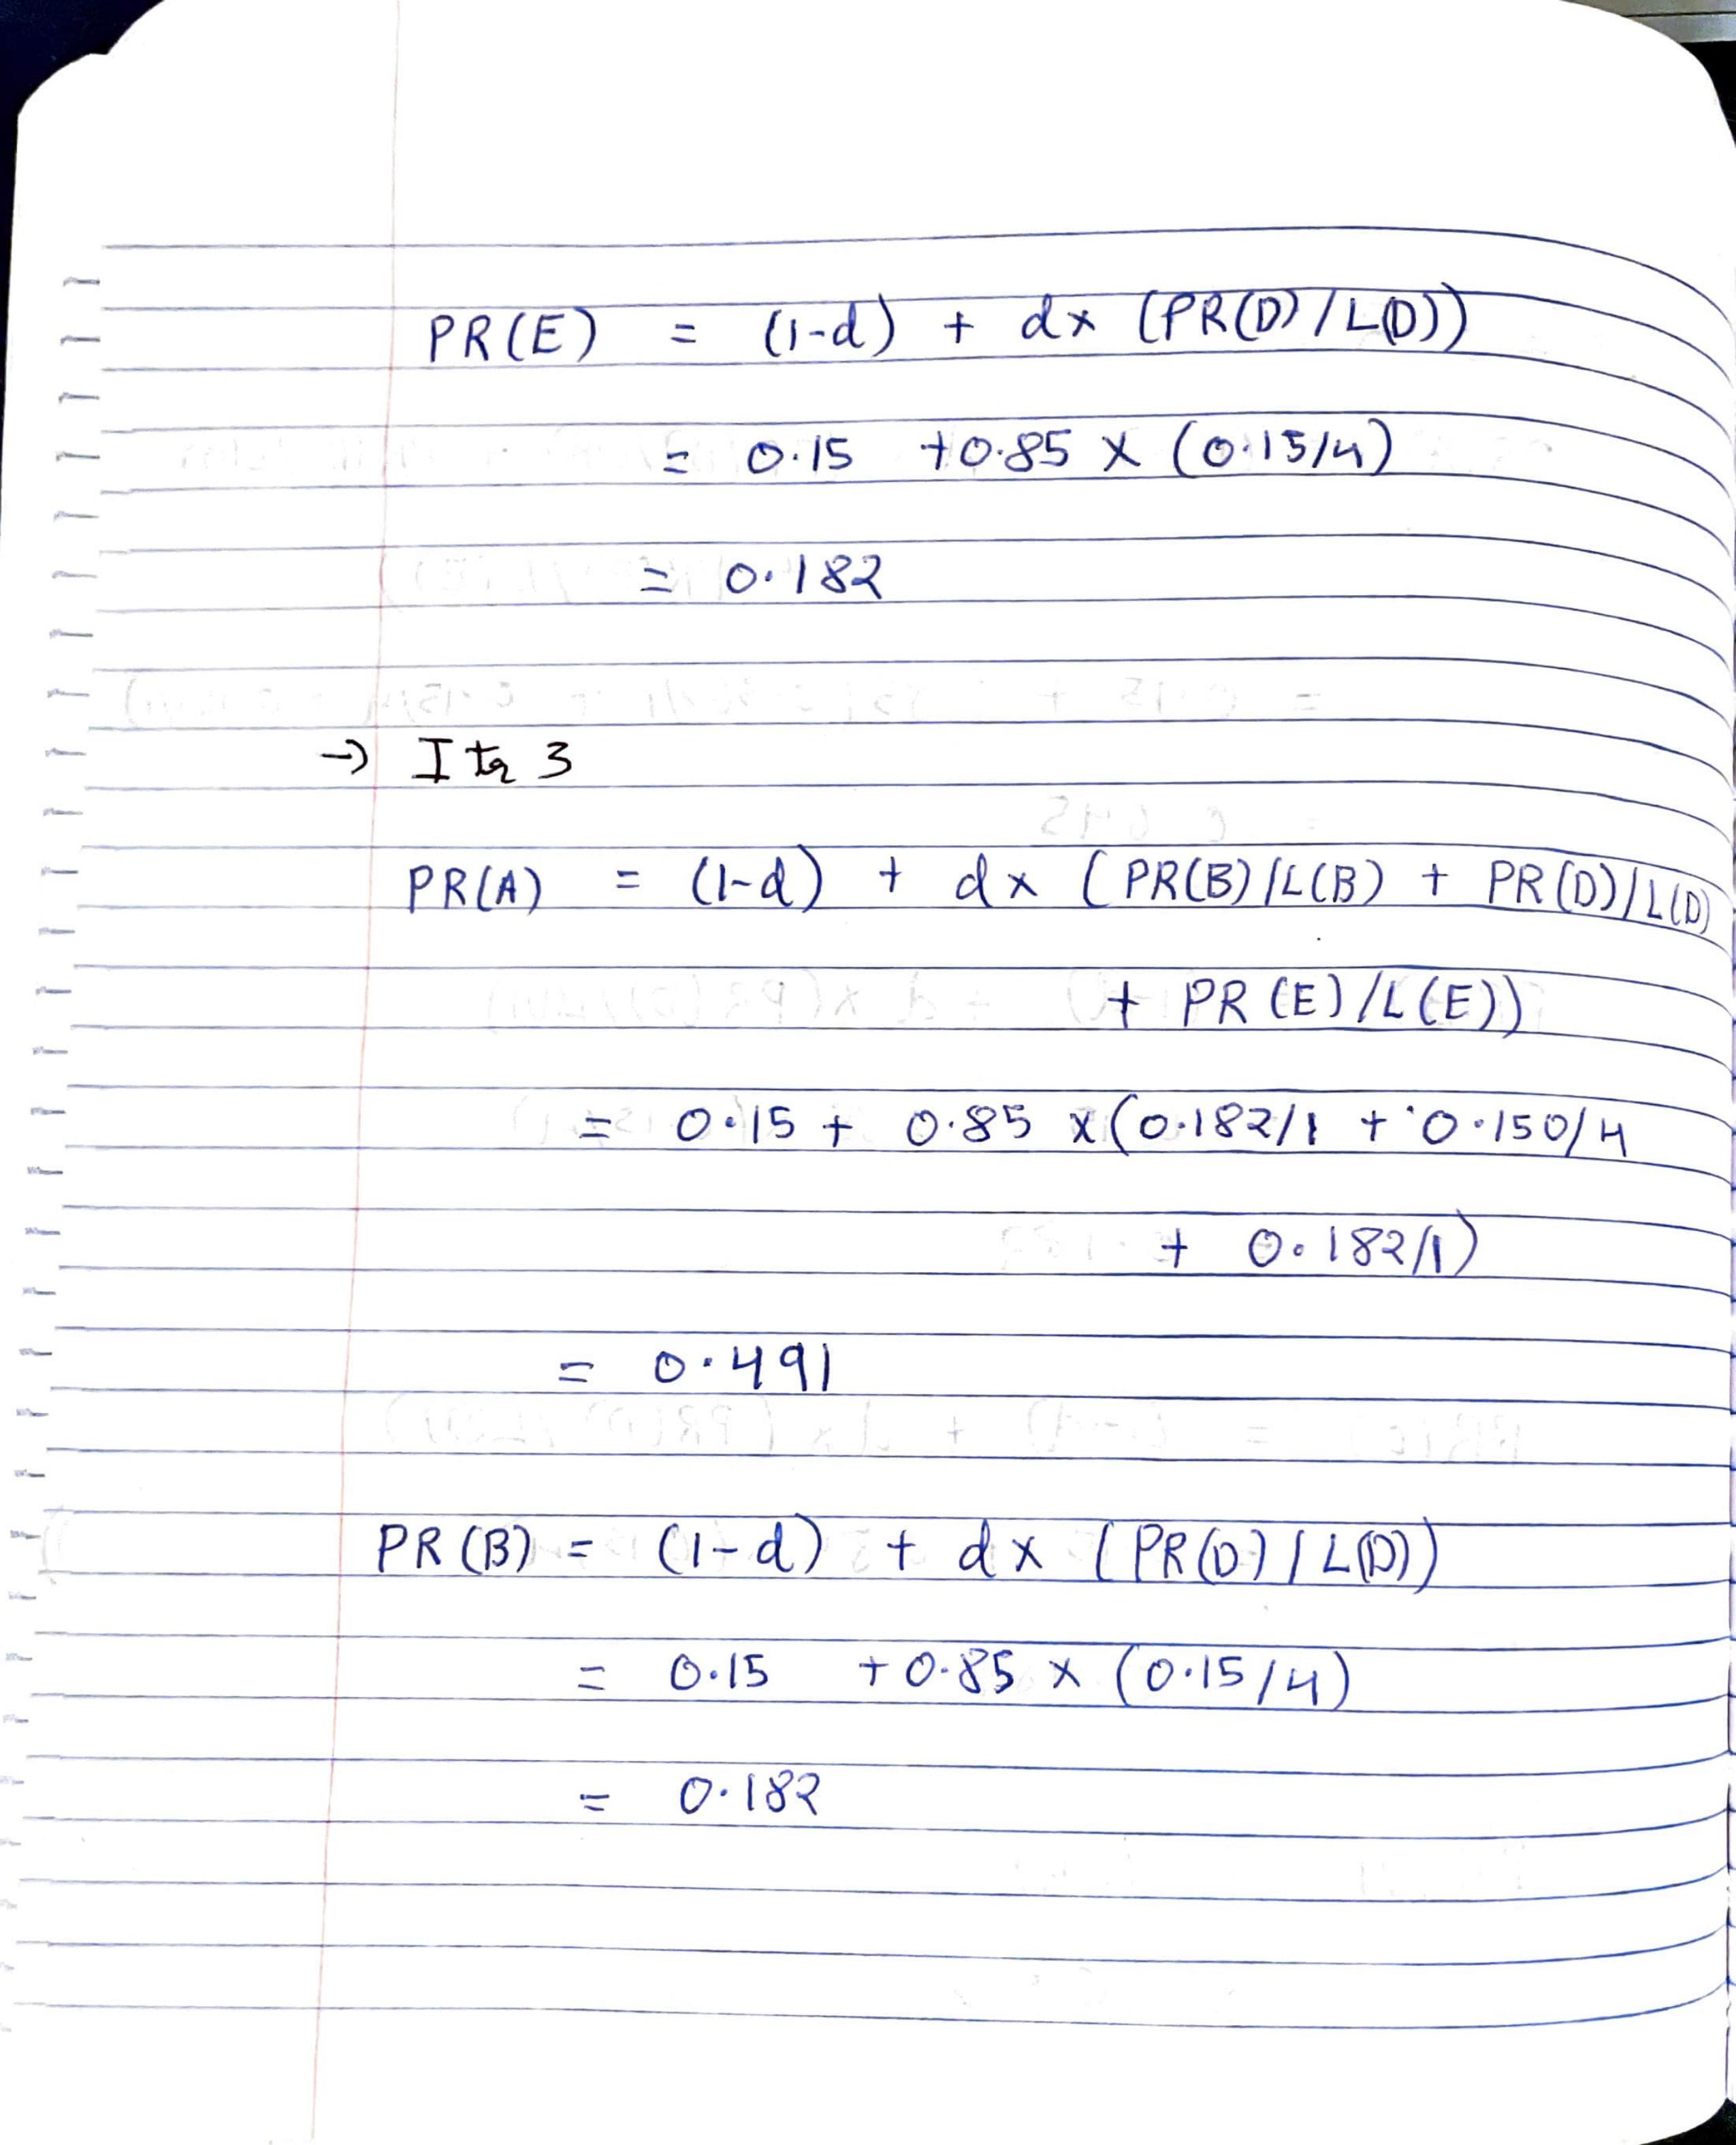 PR(E) = (1-d) + dx (PR(D)/L(D))
= 0.15 +0.85 x (0.15/4)
= 0.182
→ Itr 3
PR(A) = (1-d) + dx (PR(B)/L(B) + PR(D)/L(D)
+ PR(E)/L(E))
= 0.15 + 0.85 x (0.182/1 + 0.150/4
+ 0.182/1)
= 0.491
PR(B) = (1-d) + dx (PR(D)/L(D))
= 0.15 +0.85 x (0.15/4)
= 0.182